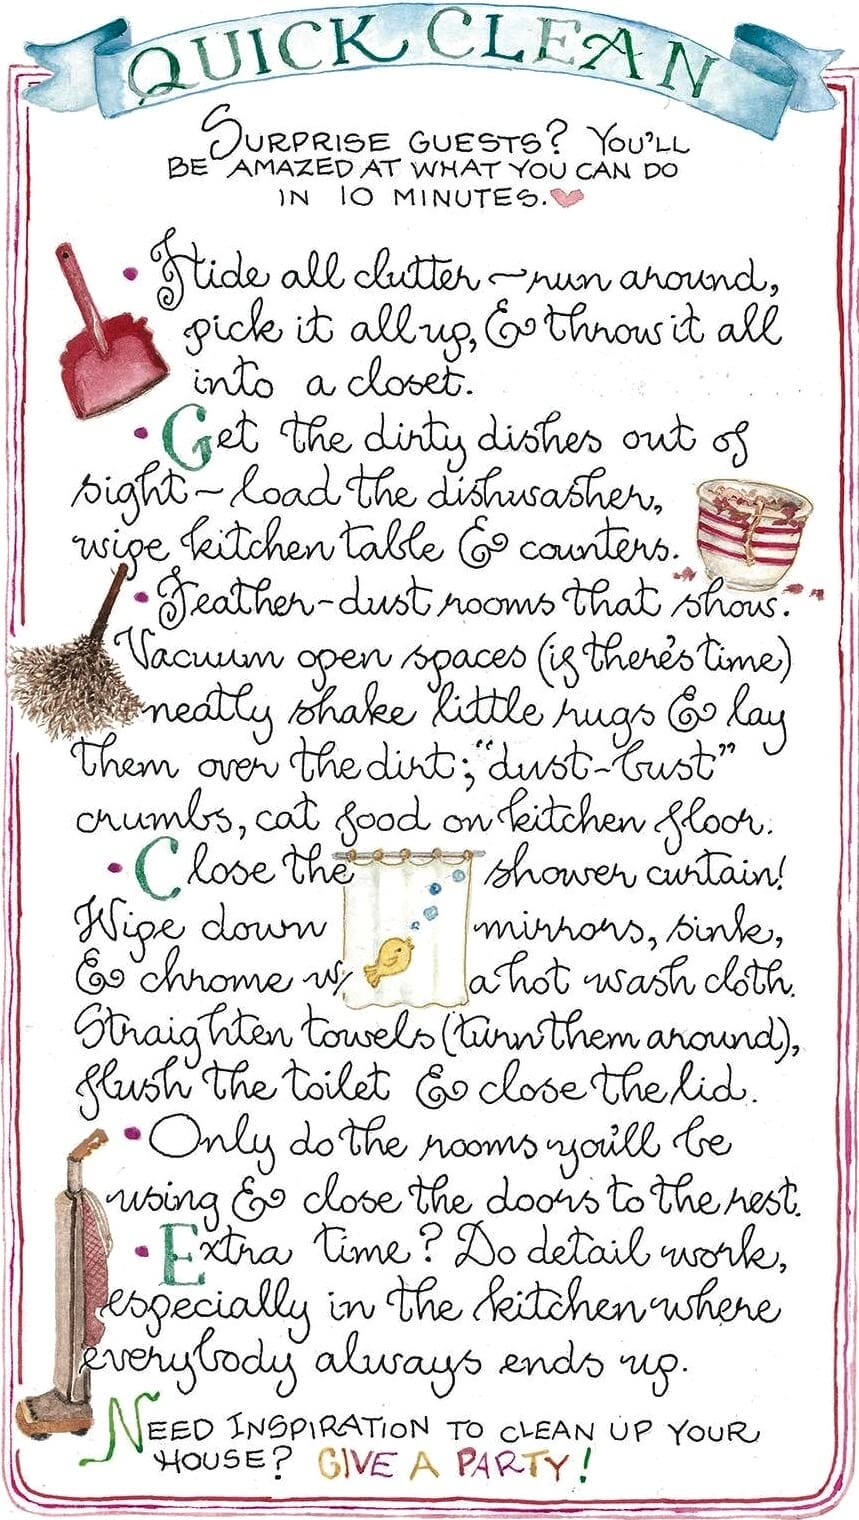 QUICK CLEAN
SURPRISE GUESTS? YOU'LL
BE AMAZED AT WHAT YOU CAN DO
IN 10 MINUTES.
• Hide all clutter ~ run around,
pick it all up, & throw it all
into a closet.
• Get the dirty dishes out of
sight ~ load the dishwasher,
wipe kitchen table & counters.
• Feather-dust rooms that show.
Vacuum open spaces (if there's time)
neatly shake little rugs & lay
them over the dirt; "dust-bust"
crumbs, cat food on kitchen floor.
• Close the shower curtain!
Wipe down mirrors, sink,
& chrome w/ a hot wash cloth.
Straighten towels (turn them around),
flush the toilet & close the lid.
• Only do the rooms you'll be
using & close the doors to the rest.
• Extra time? Do detail work,
especially in the kitchen where
everybody always ends up.
NEED INSPIRATION TO CLEAN UP YOUR
HOUSE? GIVE A PARTY!